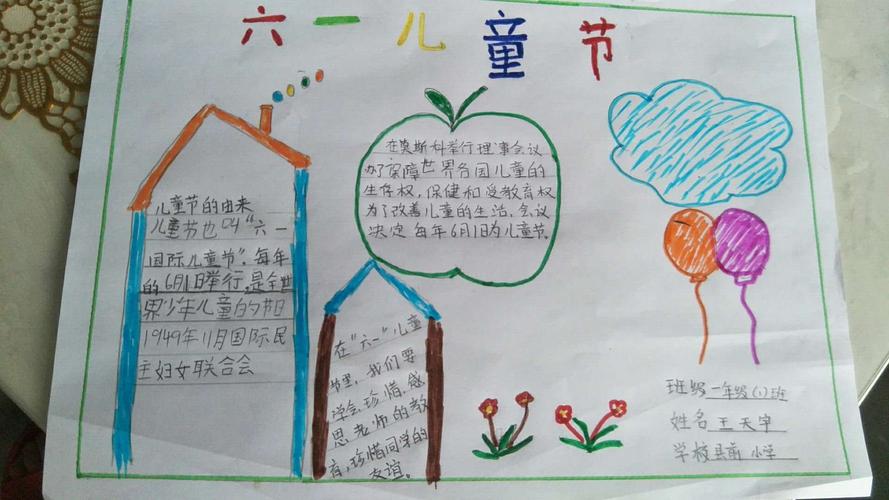 六一儿童节
儿童节的由来
儿童节也叫“六一
国际儿童节”，每年
的6月1日举行，是全世
界少年儿童的节日
1949年11月国际民
主妇女联合会
在莫斯科举行理事会议
为了保障世界各国儿童的
生存权，保健和受教育权
为了改善儿童的生活，会议
决定每年6月1日为儿童节。
在“六一”儿童
节里，我们要
学会珍惜，感
恩老师的教
育，珍惜同学的
友谊。
班级 一年级(1)班
姓名 王天宇
学校 县前小学